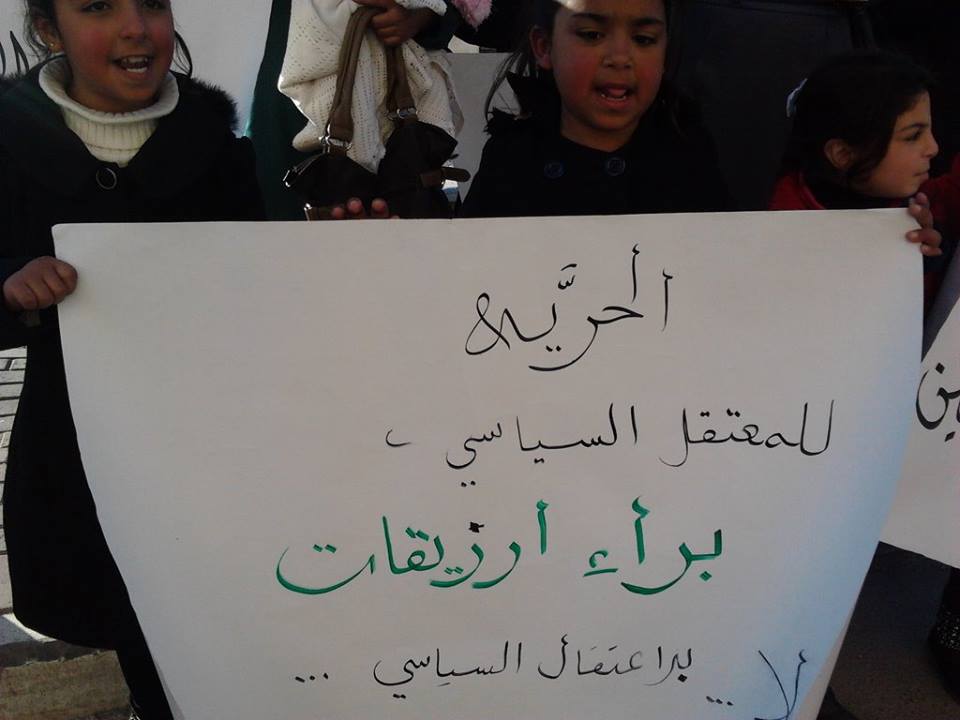 ألحريَّه
للمعتقل السياسي
برأء أرزيقات
لا ... للاعتقال السياسي ...
ين